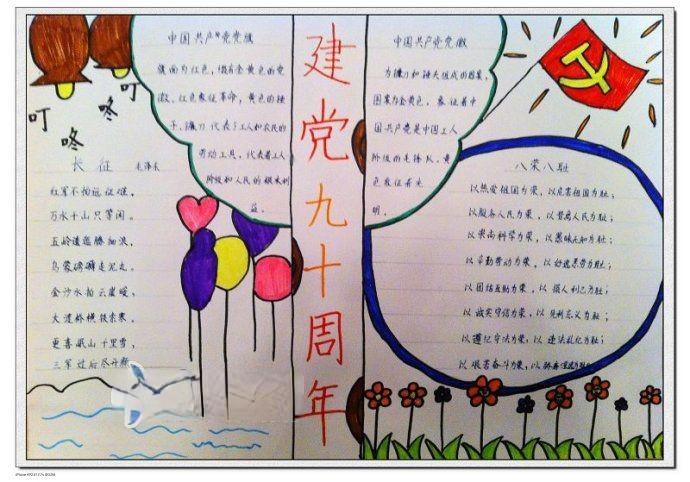 叮
咚
叮
咚
中国共产党党旗
旗面为红色,缀有金黄色的党
徽。红色象征革命,黄色的锤
子、镰刀代表了工人和农民的
劳动工具,代表着工人
阶级和人民的根本利
益。
建党九十周年
中国共产党党徽
为镰刀和锤头组成的图案,
图案为金黄色,象征着中
国共产党是中国工人
阶级的先锋队,黄
色象征着光
明。
长征 毛泽东
红军不怕远征难,
万水千山只等闲。
五岭逶迤腾细浪,
乌蒙磅礴走泥丸。
金沙水拍云崖暖,
大渡桥横铁索寒。
更喜岷山千里雪,
三军过后尽开颜。
八荣八耻
以热爱祖国为荣,以危害祖国为耻;
以服务人民为荣,以背离人民为耻;
以崇尚科学为荣,以愚昧无知为耻;
以辛勤劳动为荣,以好逸恶劳为耻;
以团结互助为荣,以损人利己为耻;
以诚实守信为荣,以见利忘义为耻;
以遵纪守法为荣,以违法乱纪为耻;
以艰苦奋斗为荣,以骄奢淫逸为耻。